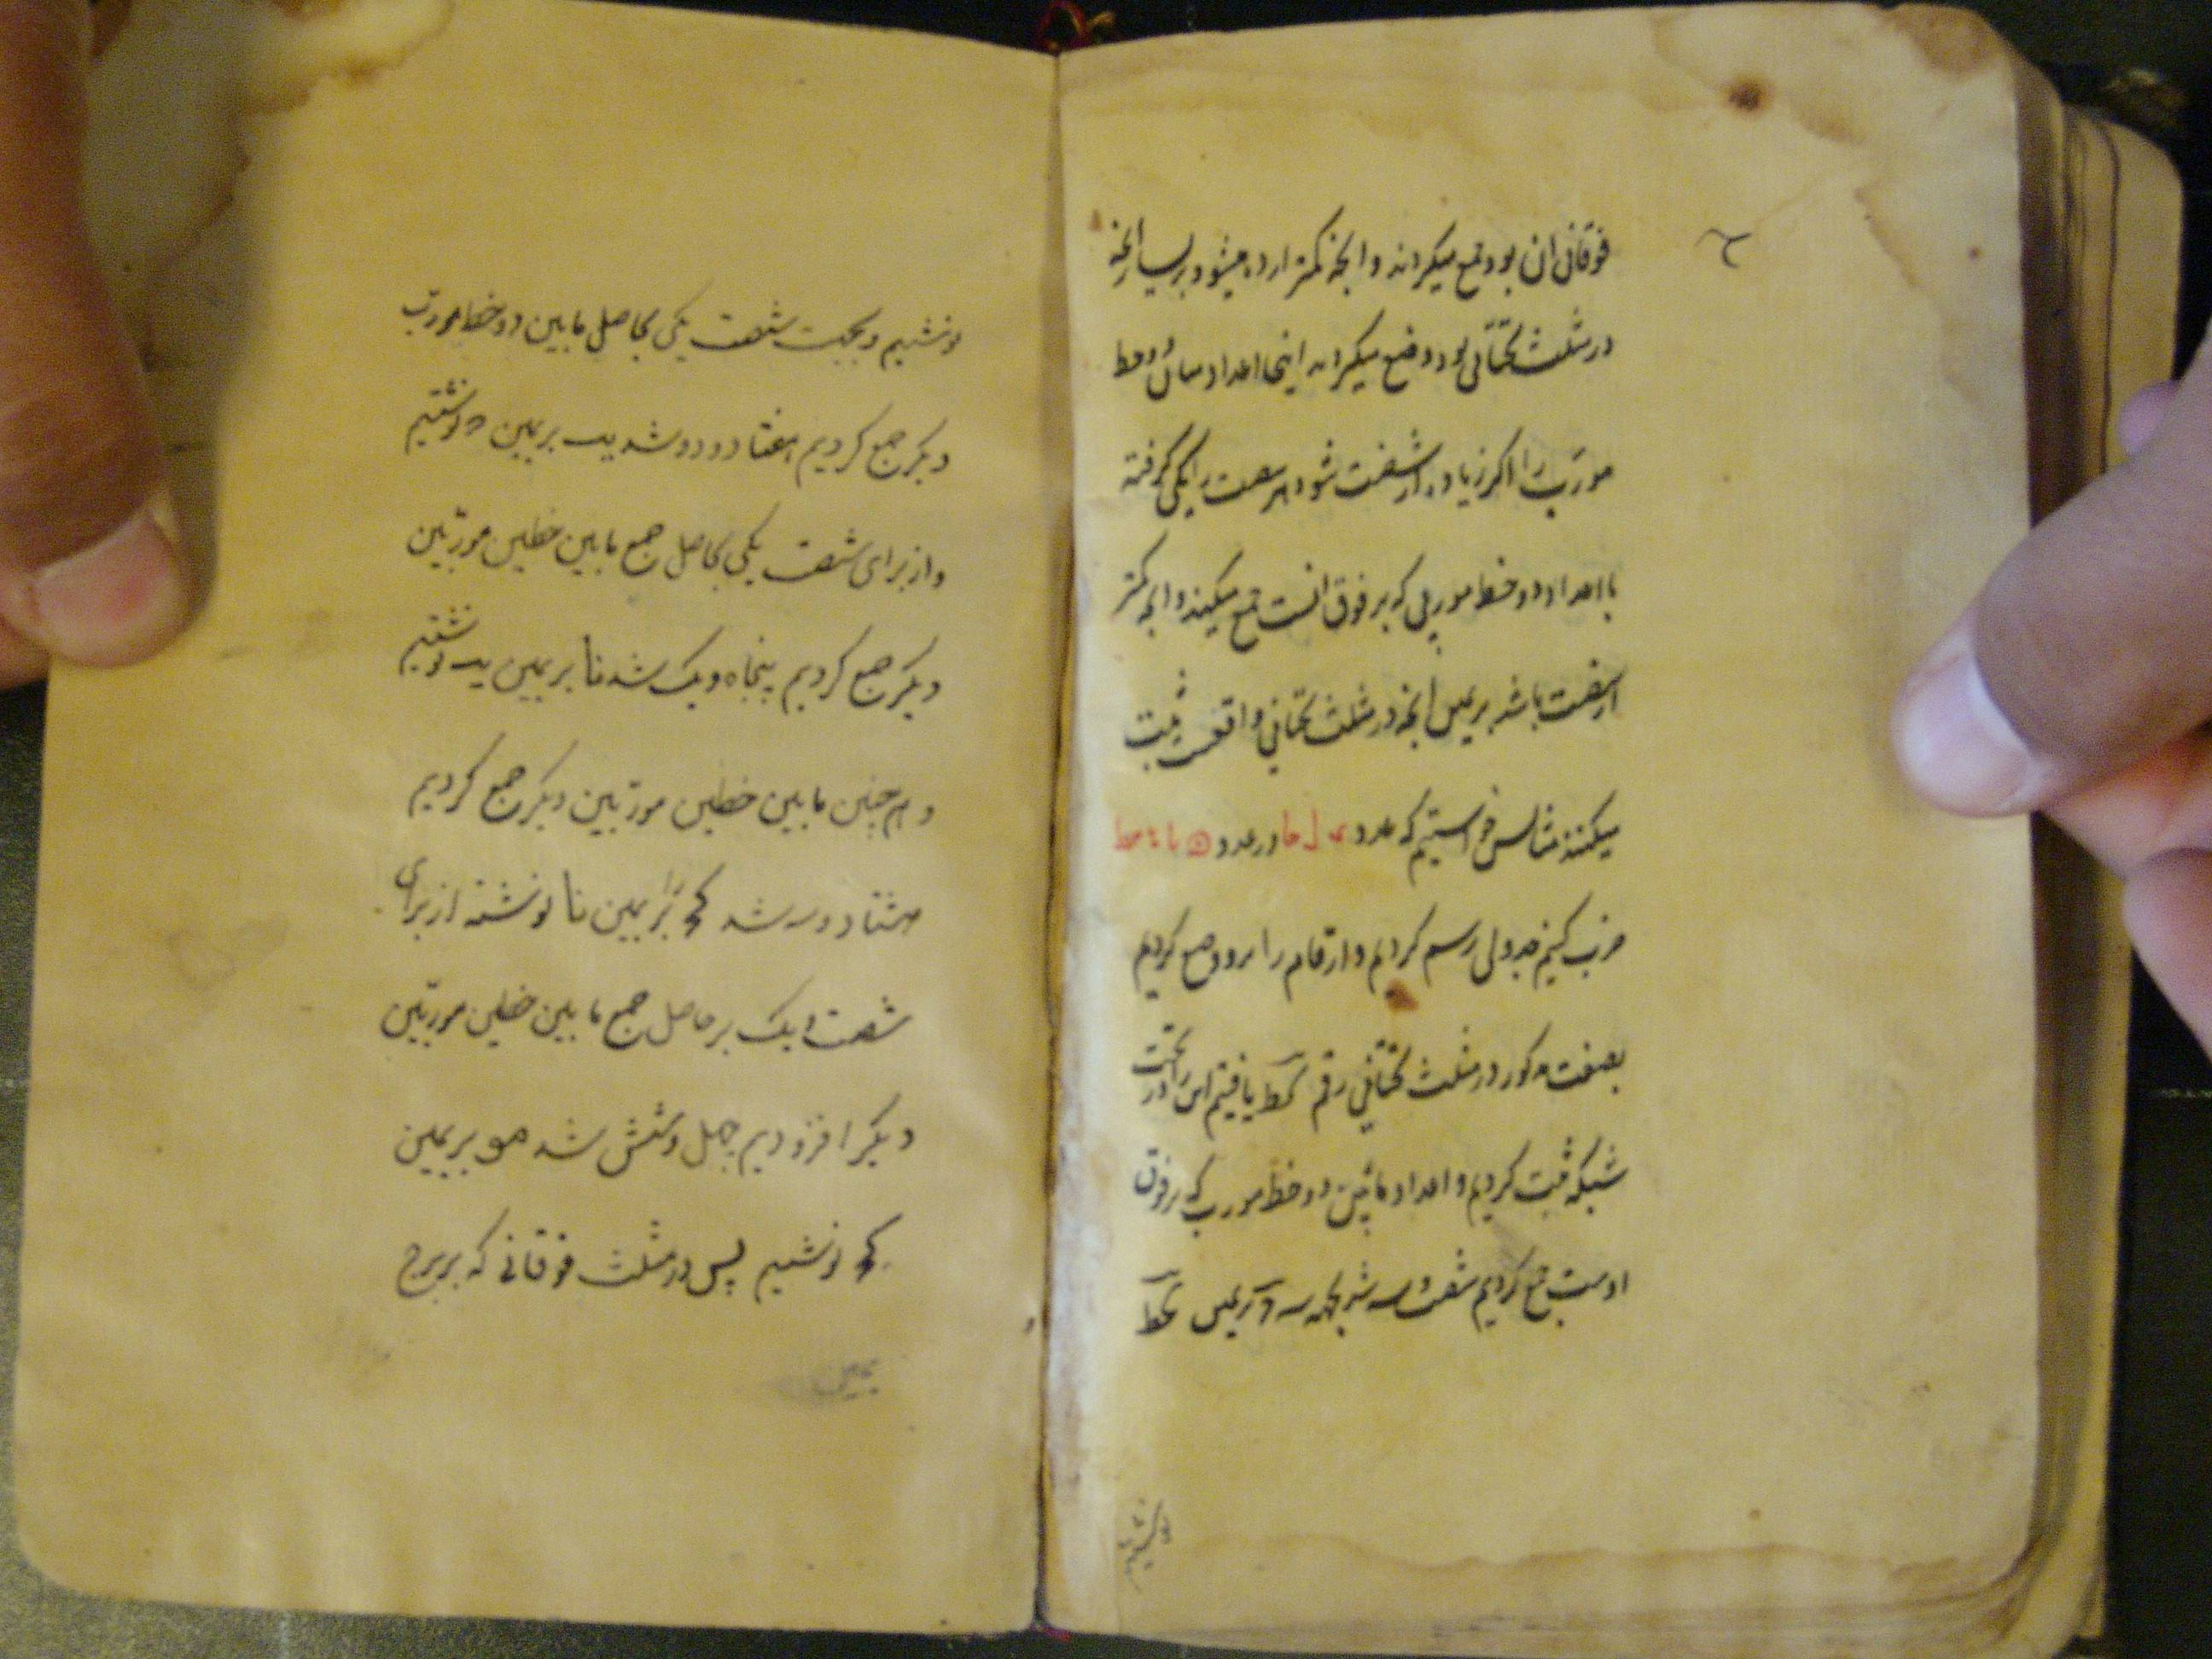 فوقانی ان بود جمع میکردند و انجه کمتر از ده میشود بریسار انجه
در مثلث تحتانی بود وضع میکردند اینجا اعداد میان دو خط
مورّب را اکر زیاده از شصت شود هر شصت را یکی کرفته
با اعداد دو خط مورپی که بر فوق انست جمع میکنند و انجه کمتر
از شصت باشد بریمین انجه در مثلث تحتانی واقعست ثبت
میکنند مثالش خواستیم که عدد در عدد
ضرب کنیم جدولی رسم کردیم و ارقام را برو وضع کردیم
بصفت مذکور در مثلث تحتانی رقم کط یافتیم این را در تحت
شبکه ثبت کردیم و اعداد مابین دو خط مورب که بر فوق
اوست جمع کردیم شصت و سه شد بریمین کط
نوشتیم
نوشتیم و بجهت شصت یکی بحاصل مابین دو خط مورّب
دیکر جمع کردیم هفتاد و دو شد یب بریمین نوشتیم
و از برای شصت یکی بحاصل جمع مابین خطین مورّبین
دیکر جمع کردیم پنجاه و یک شد نا بریمین یب نوشتیم
و هم چنین مابین خطین مورّبین دیکر جمع کردیم
هشتاد و سه شد کج بریمین نا نوشته از برای
شصت یک بر حاصل جمع مابین خطین مورّبین
دیکر افزودیم چهل و شش شد مو بریمین
کج نوشتیم پس در مثلث فوقانی که بر برج
یمین